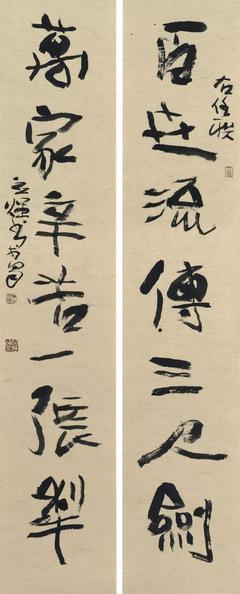 百世流傳三尺劍
萬家辛苦一張犁